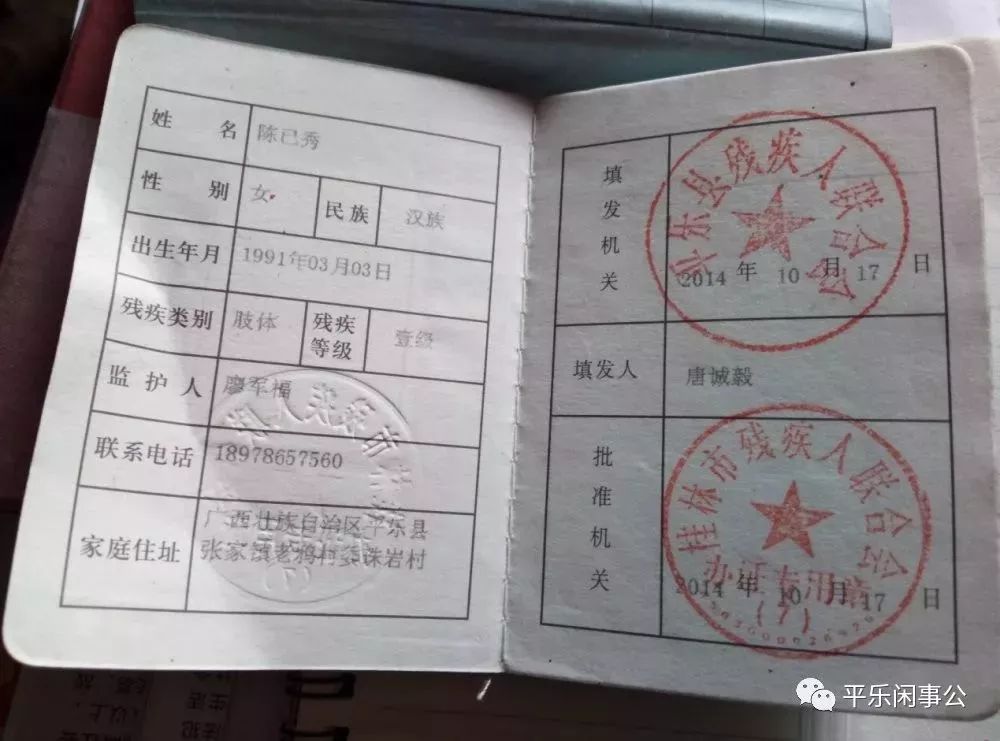 姓名 陈已秀
性别 女 民族 汉族
出生年月 1991年03月03日
残疾类别 肢体 残疾等级 壹级
监护人 廖军福
联系电话 18978657560
家庭住址 广西壮族自治区平乐县
张家镇老鸦村委珠岩村
填发机关
平乐县残疾人联合会
2014年10月17日
填发人 唐诚毅
批准机关
桂林市残疾人联合会
办证专用章
(7)
2014年10月17日
平乐闲事公